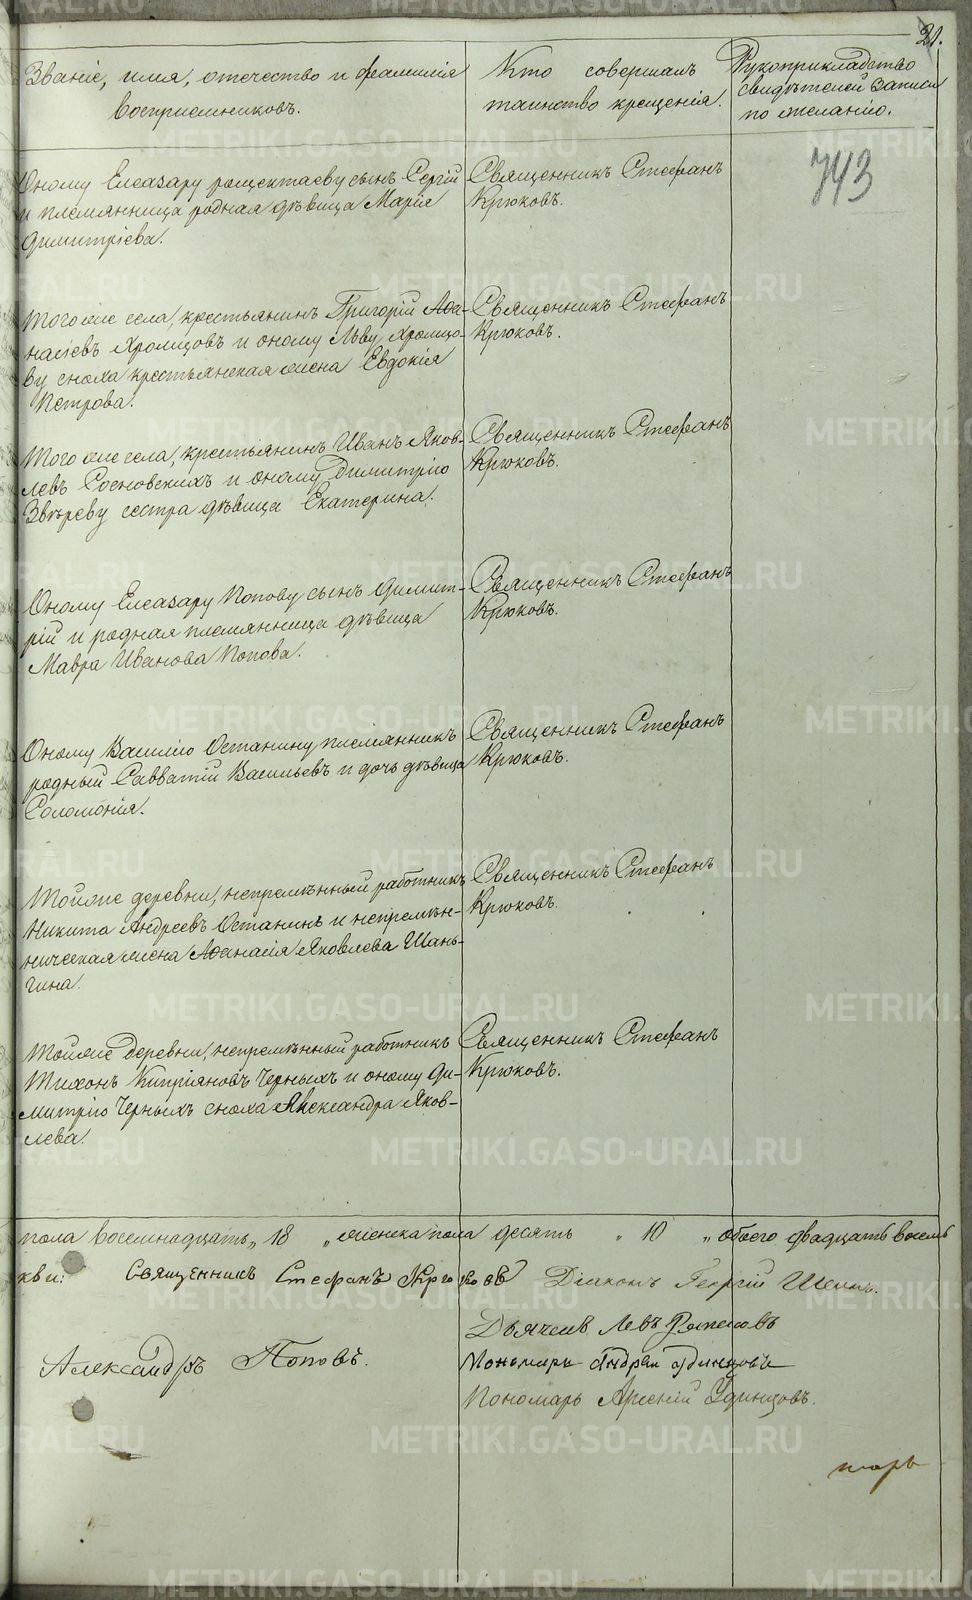 21.
Званіе, имя, отечество и фамилія
восприемниковъ.
Кто совершалъ
таинство крещенія.
Рукоприкладство
свидѣтелей записи
по желанію.
743
Оному Елеазару сынъ Сергій
и племянница родная дѣвица Марія
Димитріева.
Священникъ Стефанъ
Крюковъ.
Того же села, крестьянинъ Григорій Аѳа-
насіевъ Хромцовъ и оному Льву Хромцо-
ву сноха крестьянская жена Евдокія
Петрова.
Священникъ Стефанъ
Крюковъ.
Того же села, крестьянинъ Иванъ Яков-
левъ Сосновскихъ и оному Димитрію
Звѣреву сестра дѣвица Екатерина.
Священникъ Стефанъ
Крюковъ.
Оному Елеазару Попову сынъ Димит-
рій и родная племянница дѣвица
Мавра Иванова Попова.
Священникъ Стефанъ
Крюковъ.
Оному Василію Останину племянникъ
родный Савватій Васильевъ и дочь дѣвица
Соломонія.
Священникъ Стефанъ
Крюковъ.
Той же деревни, непремѣнный работникъ
Никита Андреевъ Останинъ и непремѣн-
ническая жена Аѳанасія Яковлева Шань-
гина.
Священникъ Стефанъ
Крюковъ.
Той же деревни, непремѣнный работникъ
Тихонъ Кипріяновъ Черныхъ и оному Ди-
митрію Черныхъ сноха Александра Яков-
лева.
Священникъ Стефанъ
Крюковъ.
пола восемнадцать „ 18 „ женска пола десять „ 10 „ обоего двадцать восемь
кви: Священникъ Стефанъ Крюковъ Діаконъ Георгій
Дьячекъ Левъ
Александръ Поповъ.
Пономарь Андрей Одинцовъ
Пономарь Арсеній Удинцовъ.
марь
METRIKI.GASO-URAL.RU